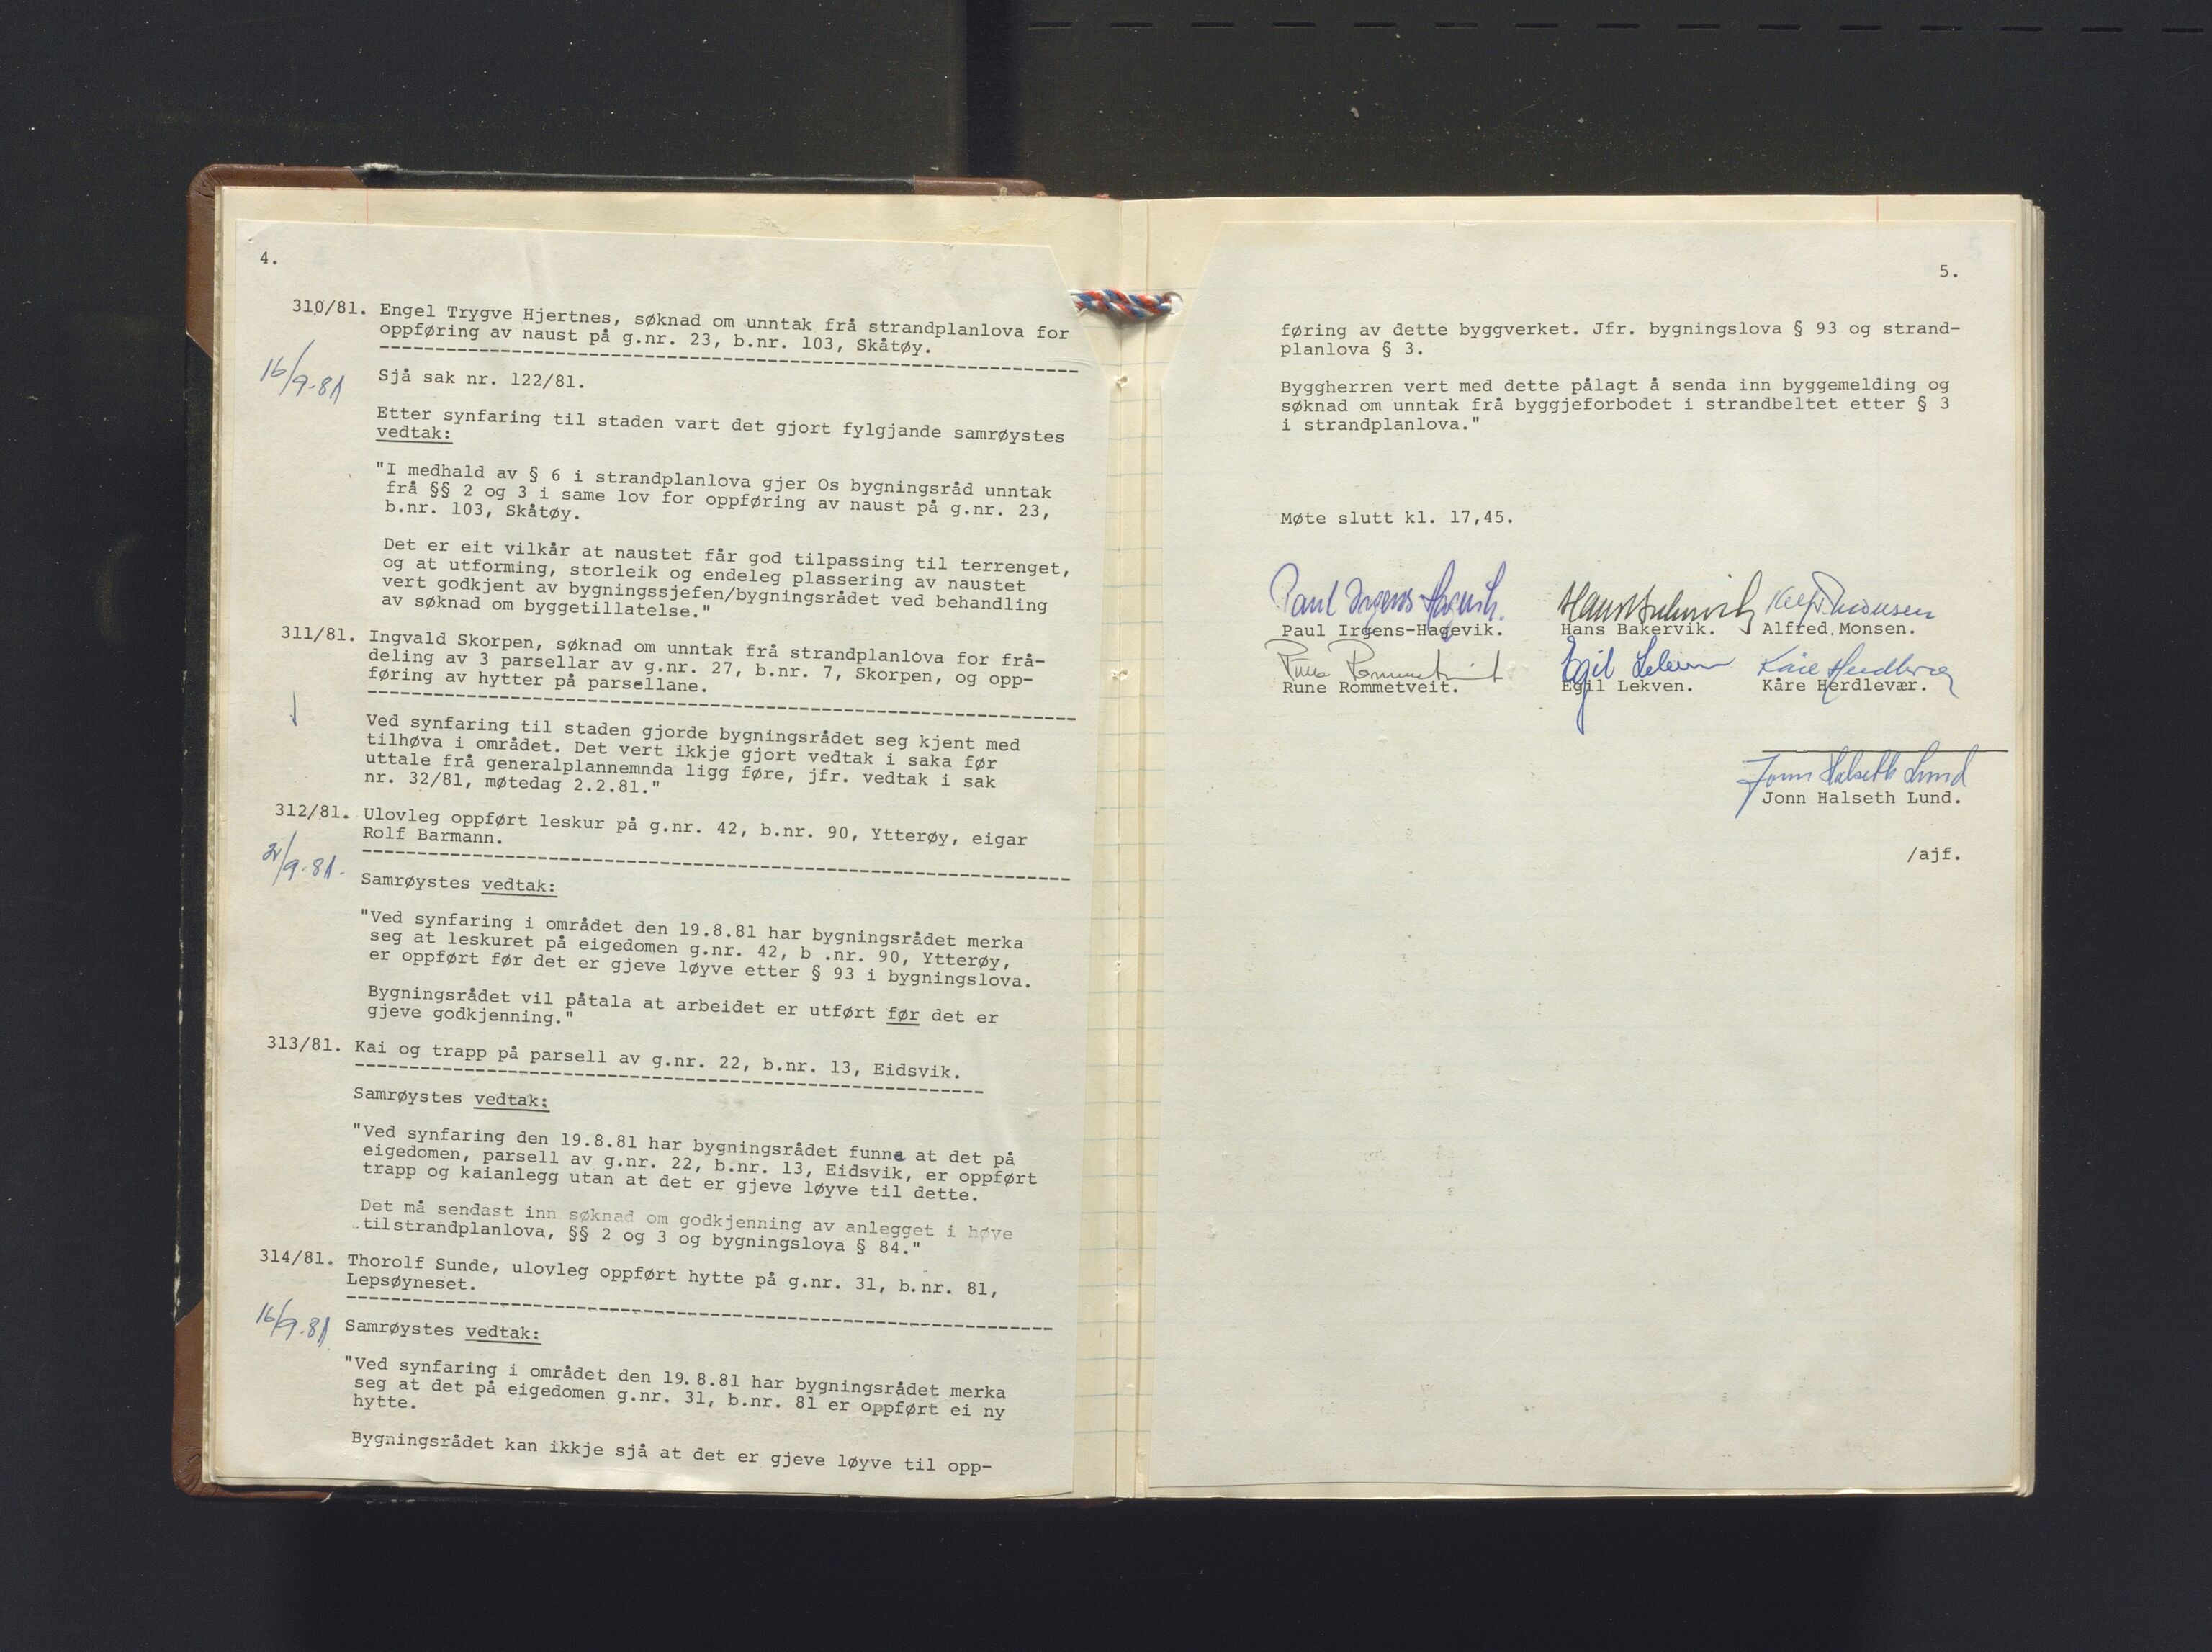 4.
310/81. Engel Trygve Hjertnes, søknad om unntak frå strandplanlova for
oppføring av naust på g.nr. 23, b.nr. 103, Skåtøy.
16/9-81
Sjå sak nr. 122/81.
Etter synfaring til staden vart det gjort fylgjande samrøystes
vedtak:
"I medhald av § 6 i strandplanlova gjer Os bygningsråd unntak
frå §§ 2 og 3 i same lov for oppføring av naust på g.nr. 23,
b.nr. 103, Skåtøy.
Det er eit vilkår at naustet får god tilpassing til terrenget,
og at utforming, storleik og endeleg plassering av naustet
vert godkjent av bygningssjefen/bygningsrådet ved behandling
av søknad om byggetillatelse."
311/81. Ingvald Skorpen, søknad om unntak frå strandplanlova for frå-
deling av 3 parsellar av g.nr. 27, b.nr. 7, Skorpen, og opp-
føring av hytter på parsellane.
Ved synfaring til staden gjorde bygningsrådet seg kjent med
tilhøva i området. Det vert ikkje gjort vedtak i saka før
uttale frå generalplannemnda ligg føre, jfr. vedtak i sak
nr. 32/81, møtedag 2.2.81."
312/81. Ulovleg oppført leskur på g.nr. 42, b.nr. 90, Ytterøy, eigar
Rolf Barmann.
/9-81.
Samrøystes vedtak:
"Ved synfaring i området den 19.8.81 har bygningsrådet merka
seg at leskuret på eigedomen g.nr. 42, b .nr. 90, Ytterøy,
er oppført før det er gjeve løyve etter § 93 i bygningslova.
Bygningsrådet vil påtala at arbeidet er utført før det er
gjeve godkjenning."
313/81. Kai og trapp på parsell av g.nr. 22, b.nr. 13, Eidsvik.
Samrøystes vedtak:
"Ved synfaring den 19.8.81 har bygningsrådet funne at det på
eigedomen, parsell av g.nr. 22, b.nr. 13, Eidsvik, er oppført
trapp og kaianlegg utan at det er gjeve løyve til dette.
Det må sendast inn søknad om godkjenning av anlegget i høve
tilstrandplanlova, §§ 2 og 3 og bygningslova § 84."
314/81. Thorolf Sunde, ulovleg oppført hytte på g.nr. 31, b.nr. 81,
Lepsøyneset.
16/9-81
Samrøystes vedtak:
"Ved synfaring i området den 19.8.81 har bygningsrådet merka
seg at det på eigedomen g.nr. 31, b.nr. 81 er oppført ei ny
hytte.
Bygningsrådet kan ikkje sjå at det er gjeve løyve til opp-
5.
føring av dette byggverket. Jfr. bygningslova § 93 og strand-
planlova § 3.
Byggherren vert med dette pålagt å senda inn byggemelding og
søknad om unntak frå byggjeforbodet i strandbeltet etter § 3
i strandplanlova."
Møte slutt kl. 17,45.
Paul Irgens-Hagevik. Hans Bakervik. Alfred Monsen.
Paul Irgens-Hagevik. Hans Bakervik. Alfred.Monsen.
Rune Rommetveit Egil Lekven Kåre Herdlevær
Rune Rommetveit. Egil Lekven. Kåre Herdlevær.
Jonn Halseth Lund
Jonn Halseth Lund.
/ajf.